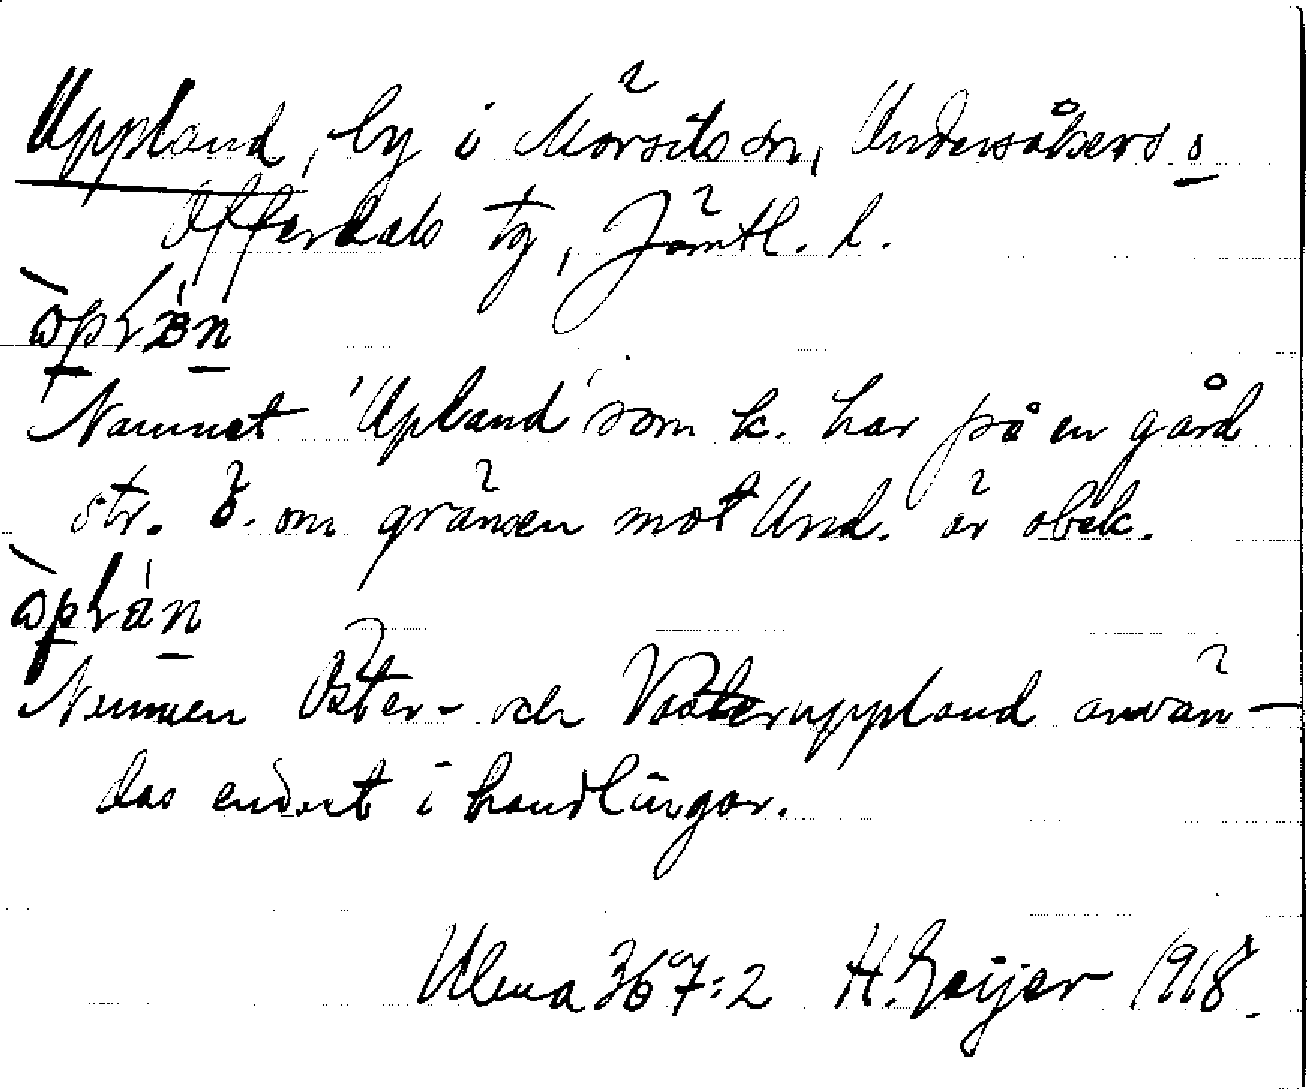 Uppland, by i Mörsils sn, Undersåkers o
Offerdals tg, Jämtl. l.
Namnet 'Upland' som k. har på en gård
str. Ö. om gränsen mot Und. är obek.
Namnen Öster- och Västeruppland använ-
das endast i handlingar.
Ulma 367:2 H. Geijer 1918.